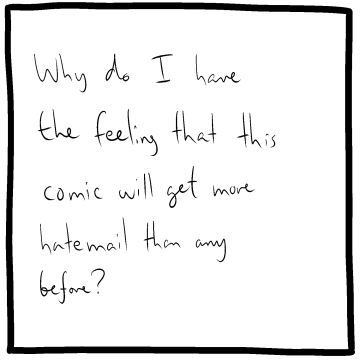 Why do I have
the feeling that this
comic will get more
hatemail than any
before?